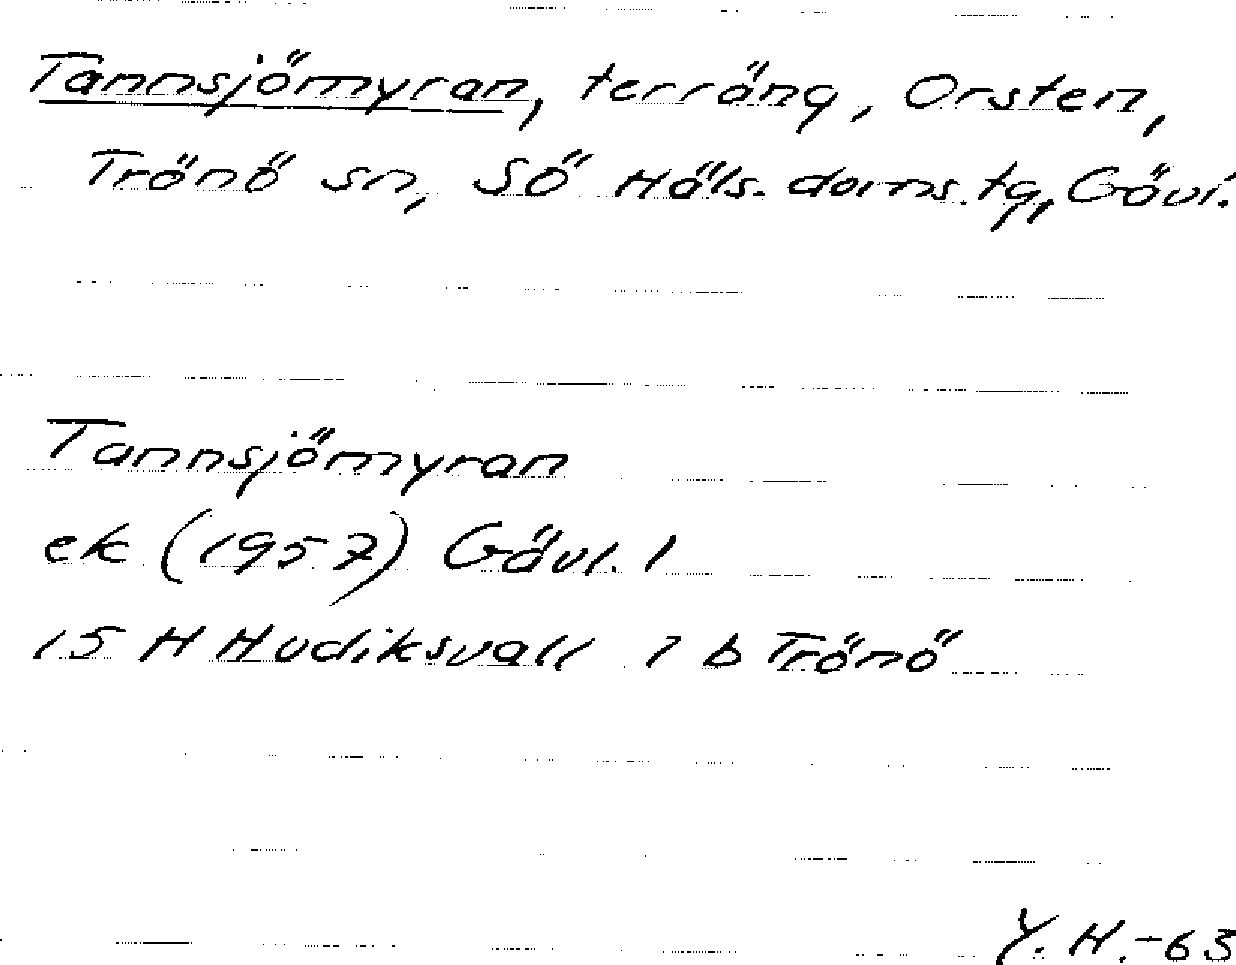 Tannsjömyran, terräng, Orsten,
Trönö sn, Sö Häls. doms.tg, Gävl.
Tannsjömyran
ek (1957) Gävl. l
15 H Hudiksvall 1 b Trönö
Y. H. -63